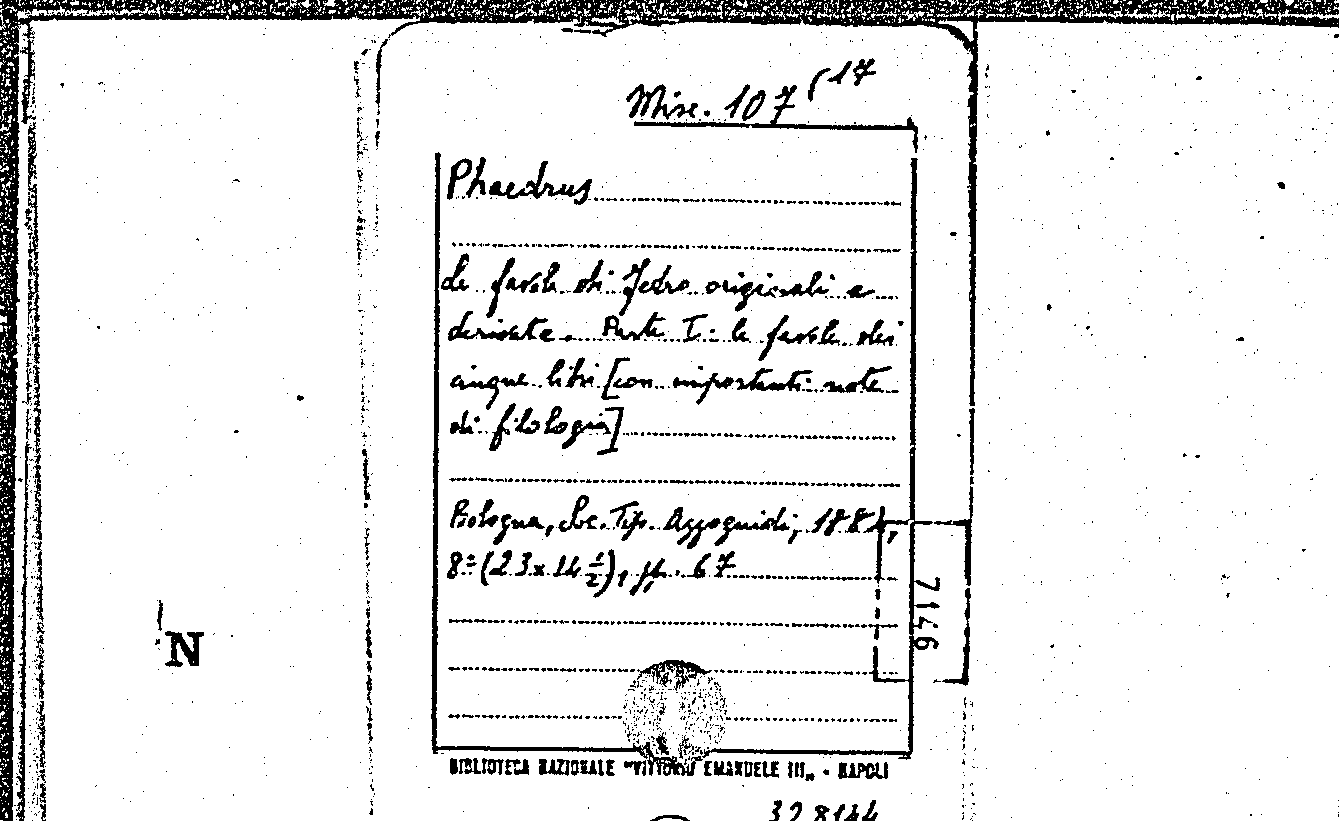 Misc. 107 (17
Phaedrus
Le favole di Fedro originali e
derivate. Parte I: le favole dei
cinque libri [con importanti note
di filologia]
Bologna, Soc. Tip. Azzoguidi, 188
8º (23x14 1/2), pp. 67
7146
N
BIBLIOTECA NAZIONALE "VITTORIO EMANUELE III„ - NAPOLI
328144